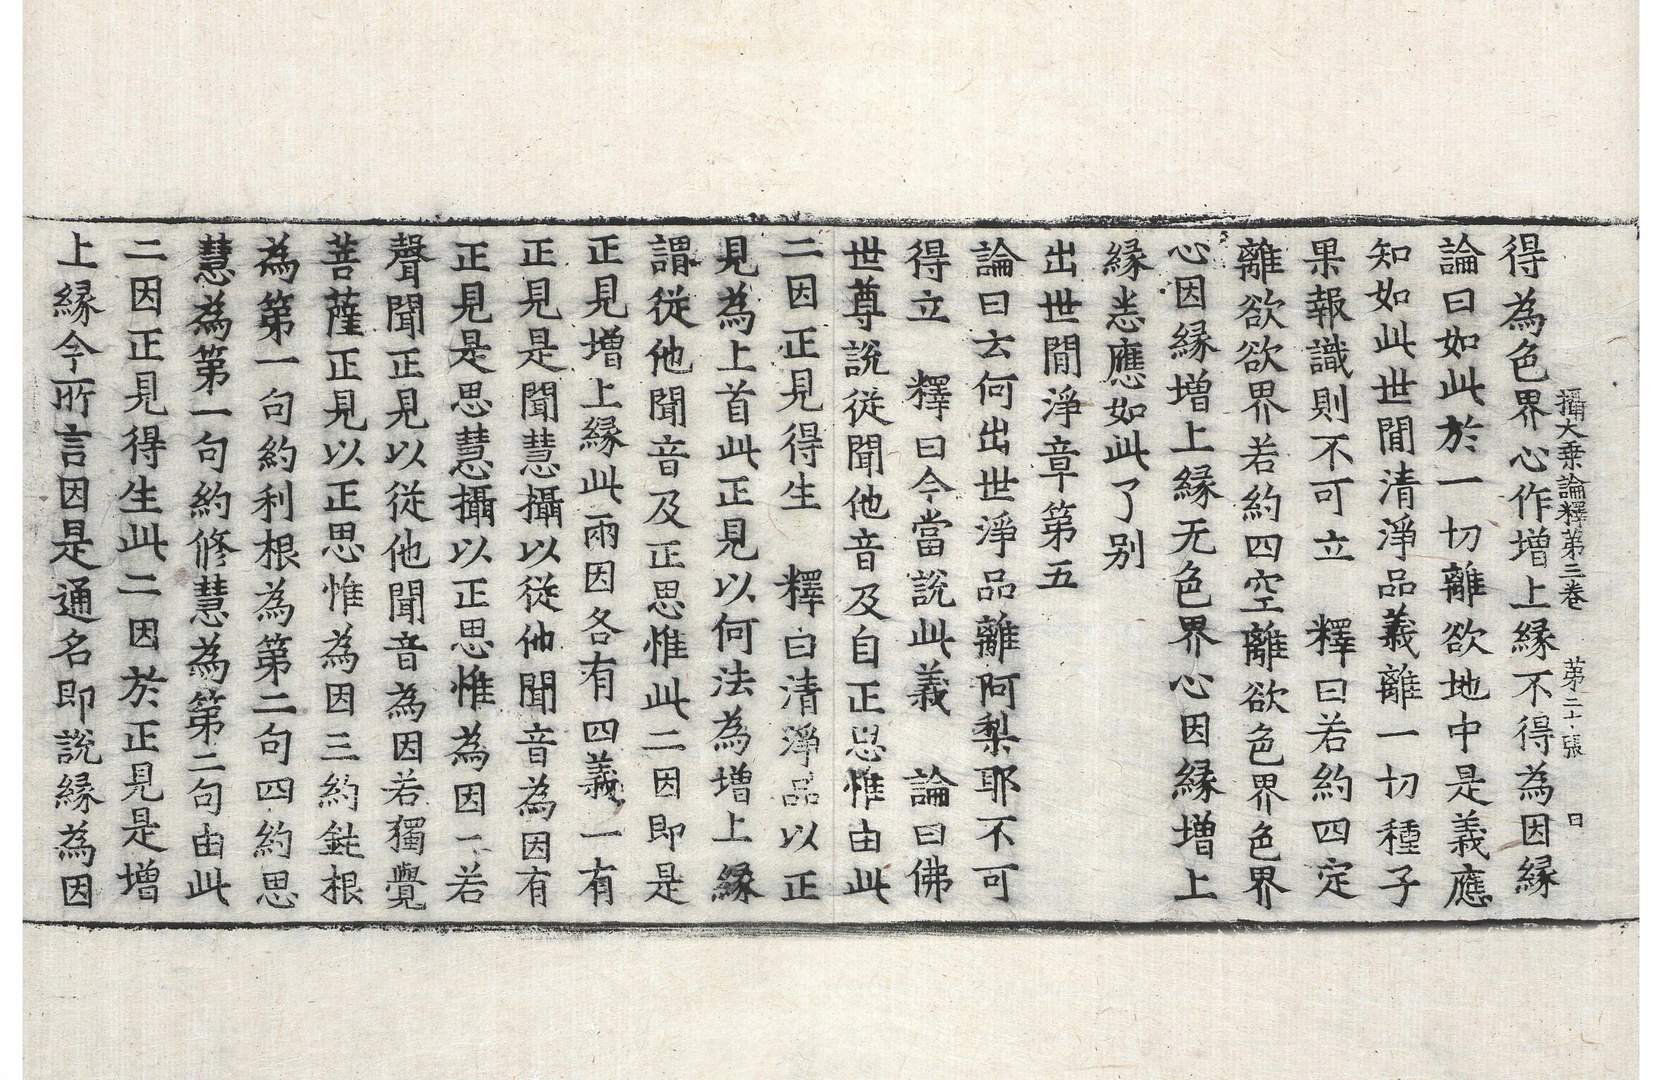 攝大乗論釋第三卷　第二十張　日
得為色界心作增上縁不得為因縁
論曰如此於一切離欲地中是義應
知如此世間清淨品義離一切種子
果報識則不可立　釋曰若約四定
離欲欲界若約四空離欲色界色界
心因縁增上縁无色界心因縁增上
縁悉應如此了别
出世間淨章第五
論曰云何出世淨品離阿梨耶不可
得立　釋曰今當說此義　論曰佛
世尊說從聞他音及自正思惟由此
二因正見得生　釋曰清淨品以正
見為上首此正見以何法為增上縁
謂從他聞音及正思惟此二因即是
正見增上縁此兩因各有四義一有
正見是聞慧攝以從他聞音為因有
正見是思慧攝以正思惟為因二若
聲聞正見以從他聞音為因若獨覺
菩薩正見以正思惟為因三約鈍根
為第一句約利根為第二句四約思
慧為第一句約修慧為第二句由此
二因正見得生此二因於正見是增
上縁今所言因是通名即說縁為因